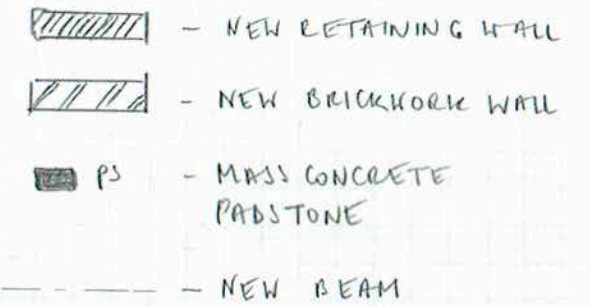 - NEW RETAINING WALL
- NEW BRICKWORK WALL
PS - MASS CONCRETE
PADSTONE
- NEW BEAM